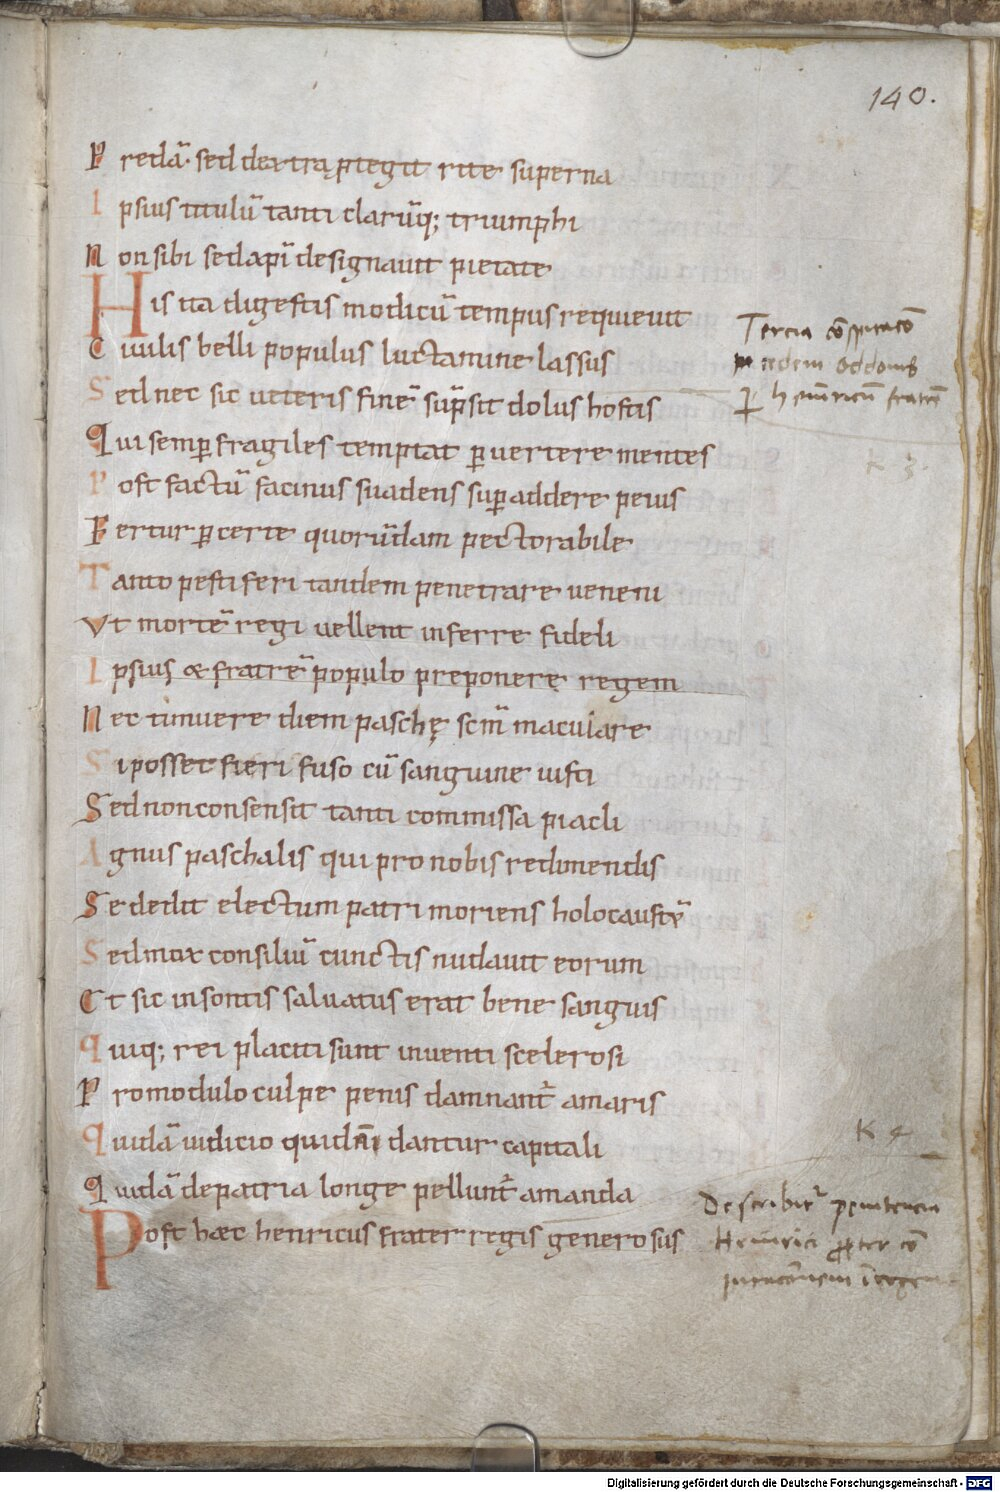 140.
P redā· sed dextrą ꝓtegit rite superna
I psius titulū tanti clarūq; triumphi
N on sibi sed xp̄i designauit pietate
His ita digestis modicū tempus requieuit
C iuilis belli populus luctamine lassus
S ed nec sic ueteris finē sūpsit dolus hostis
Q ui semꝑ fragiles temptat ꝑuertere mentes
P ost factū facinus suadens suꝑaddere peius
F ertur ꝑ certe quorūdam pectora bile
T anto pestiferi tandem penetrare ueneni
V t mortē regi uellent inferre fideli
I psius & fratrē populo preponere regem
N ec timuere diem paschę sc̄m maculare
S i posset fieri fuso cū sanguine iusti
S ed non consensit tanti commissa piacli
A gnus paschalis qui pro nobis redimendis
S e dedit electum patri moriens holocaustū
S ed mox consiliū cunctis nudauit eorum
E t sic insontis saluatus erat bene sanguis
Q uiq; rei placiti sunt inuenti scelerosi
P ro modulo culpe penis damnant᷑ amaris
Q uidā iudicio quidā dantur capitali
Q uidā de patria longe pellunt᷑ amanda
Post hæc henricus frater regis generosus
Tercia cōspiracō
in cedem Oddonis
ꝑ heinricū fratrē
K 3.
K 4
Describit᷑ penitencia
Heinrici ꝓpter cō
Digitalisierung gefördert durch die Deutsche Forschungsgemeinschaft - DFG